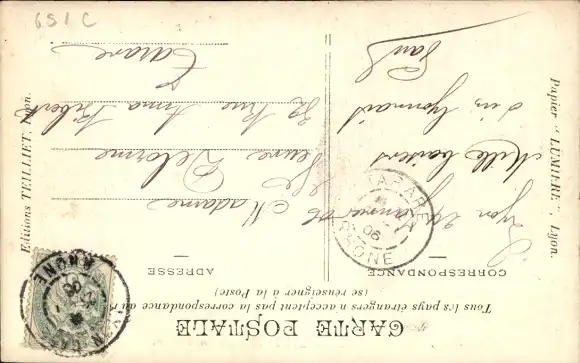 CARTE POSTALE
Tous les pays étrangers n'acceptent pas la correspondance au
(se renseigner à la Poste)
CORRESPONDANCE
Lyon 24
06
Mille baisers
d'un lyonnais
Paul
ADRESSE
Madame
Vve Delorme
32 Rue Anna Bibert
Tarare
TARARE
06
RHONE
LYON
RHONE
Papier "LUMIERE", Lyon.
Editions TEILLIET, Lyon.
651 C